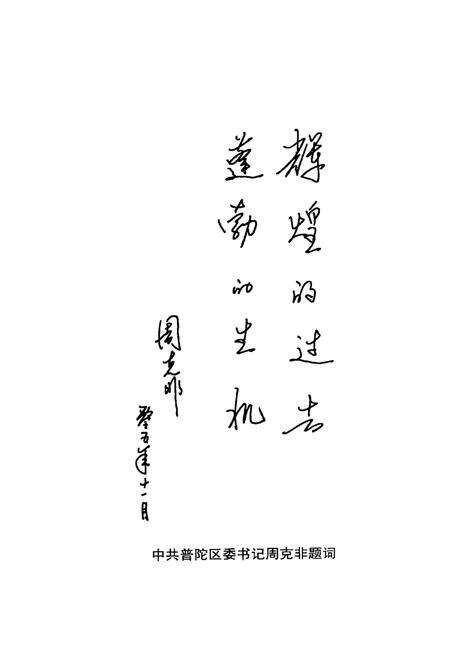 辉煌的过去
蓬勃的生机
周克非
零五年十一月
中共普陀区委书记周克非题词